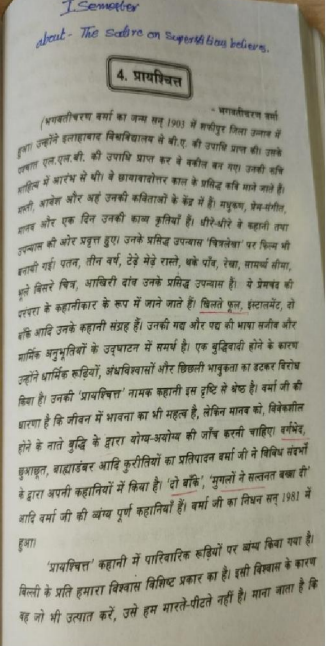 I Semester
about - The satire on superstitious believers.
4. प्रायश्चित्त
- भगवतीचरण वर्मा
(भगवतीचरण वर्मा का जन्म सन् 1903 में शफीपुर जिला उन्नाव में
हुआ। उन्होंने इलाहाबाद विश्वविद्यालय से बी.ए. की उपाधि प्राप्त की। उसके
पश्चात एल.एल.बी. की उपाधि प्राप्त कर वे वकील बन गए। उनकी रुचि
साहित्य में आरंभ से थी। वे छायावादोत्तर काल के प्रसिद्ध कवि माने जाते हैं।
मस्ती, आवेश और अहं उनकी कविताओं के केंद्र में हैं। मधुकण, प्रेम-संगीत,
मानव और एक दिन उनकी काव्य कृतियाँ हैं। धीरे-धीरे वे कहानी तथा
उपन्यास की ओर प्रवृत्त हुए। उनके प्रसिद्ध उपन्यास 'चित्रलेखा' पर फिल्म भी
बनायी गई। पतन, तीन वर्ष, टेढ़े मेढ़े रास्ते, थके पाँव, रेखा, सामर्थ्य सीमा,
भूले बिसरे चित्र, आखिरी दांव उनके प्रसिद्ध उपन्यास हैं। ये प्रेमचंद की
परंपरा के कहानीकार के रूप में जाने जाते हैं। खिलते फूल, इंस्टालमेंट, दो
बाँके आदि उनके कहानी संग्रह हैं। उनकी गद्य और पद्य की भाषा सजीव और
मार्मिक अनुभूतियों के उद्घाटन में समर्थ है। एक बुद्धिवादी होने के कारण
उन्होंने धार्मिक रूढ़ियों, अंधविश्वासों और छिछली भावुकता का डटकर विरोध
किया है। उनकी 'प्रायश्चित्त' नामक कहानी इस दृष्टि से श्रेष्ठ है। वर्मा जी की
धारणा है कि जीवन में भावना का भी महत्व है, लेकिन मानव को, विवेकशील
होने के नाते बुद्धि के द्वारा योग्य-अयोग्य की जाँच करनी चाहिए। वर्गभेद,
छुआछूत, बाह्याडंबर आदि कुरीतियों का प्रतिपादन वर्मा जी ने विविध संदर्भों
के द्वारा अपनी कहानियों में किया है। 'दो बाँके', 'मुगलों ने सल्तनत बख्श दी'
आदि वर्मा जी की व्यंग्य पूर्ण कहानियाँ हैं। वर्मा जी का निधन सन् 1981 में
हुआ।
'प्रायश्चित्त' कहानी में पारिवारिक रूढ़ियों पर व्यंग्य किया गया है।
बिल्ली के प्रति हमारा विश्वास विशिष्ट प्रकार का है। इसी विश्वास के कारण
वह जो भी उत्पात करें, उसे हम मारते-पीटते नहीं है। माना जाता है कि